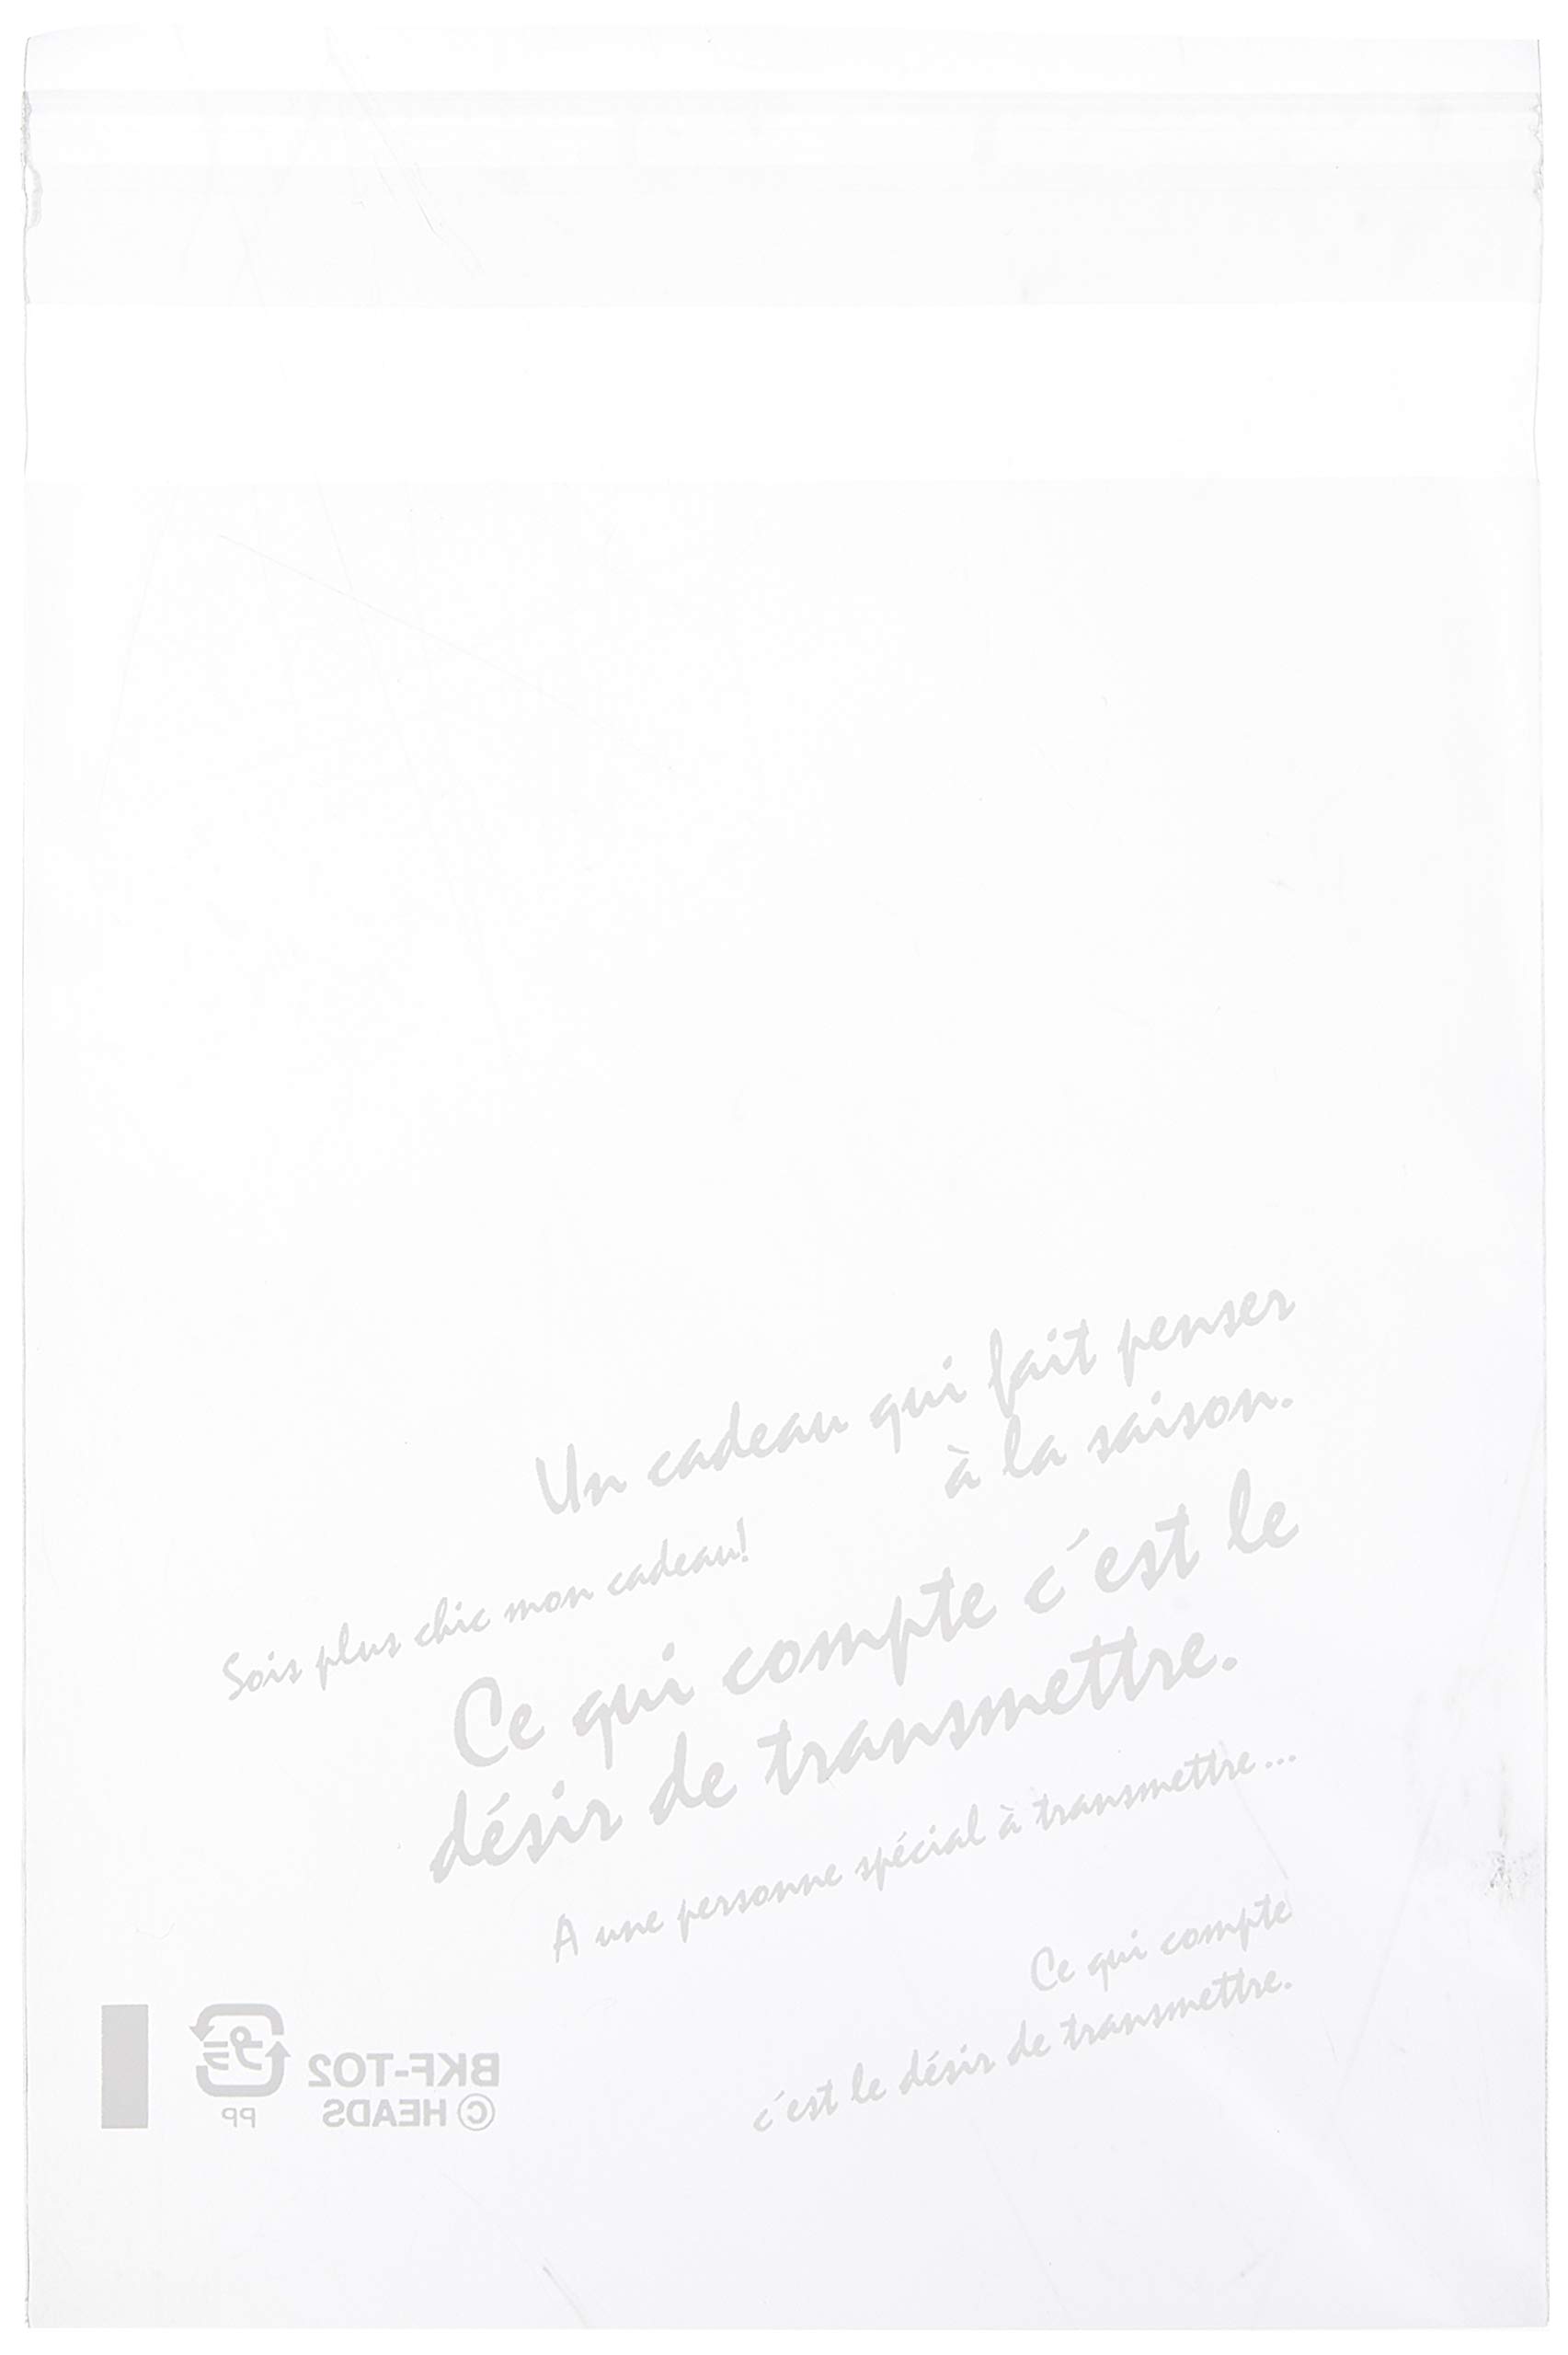 Un cadeau qui fait penser
à la saison.
Sois plus chic mon cadeau!
Ce qui compte c´est le
désir de transmettre.
A une personne spécial à transmettre...
Ce qui compte
c´est le désir de transmettre.
プラ
BKF-T02
PP
© HEADS